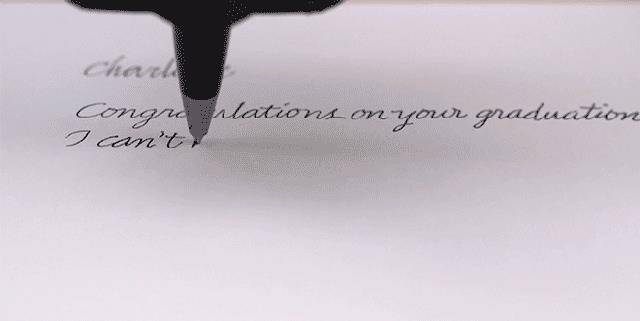 Congratulations on your graduation
I can't